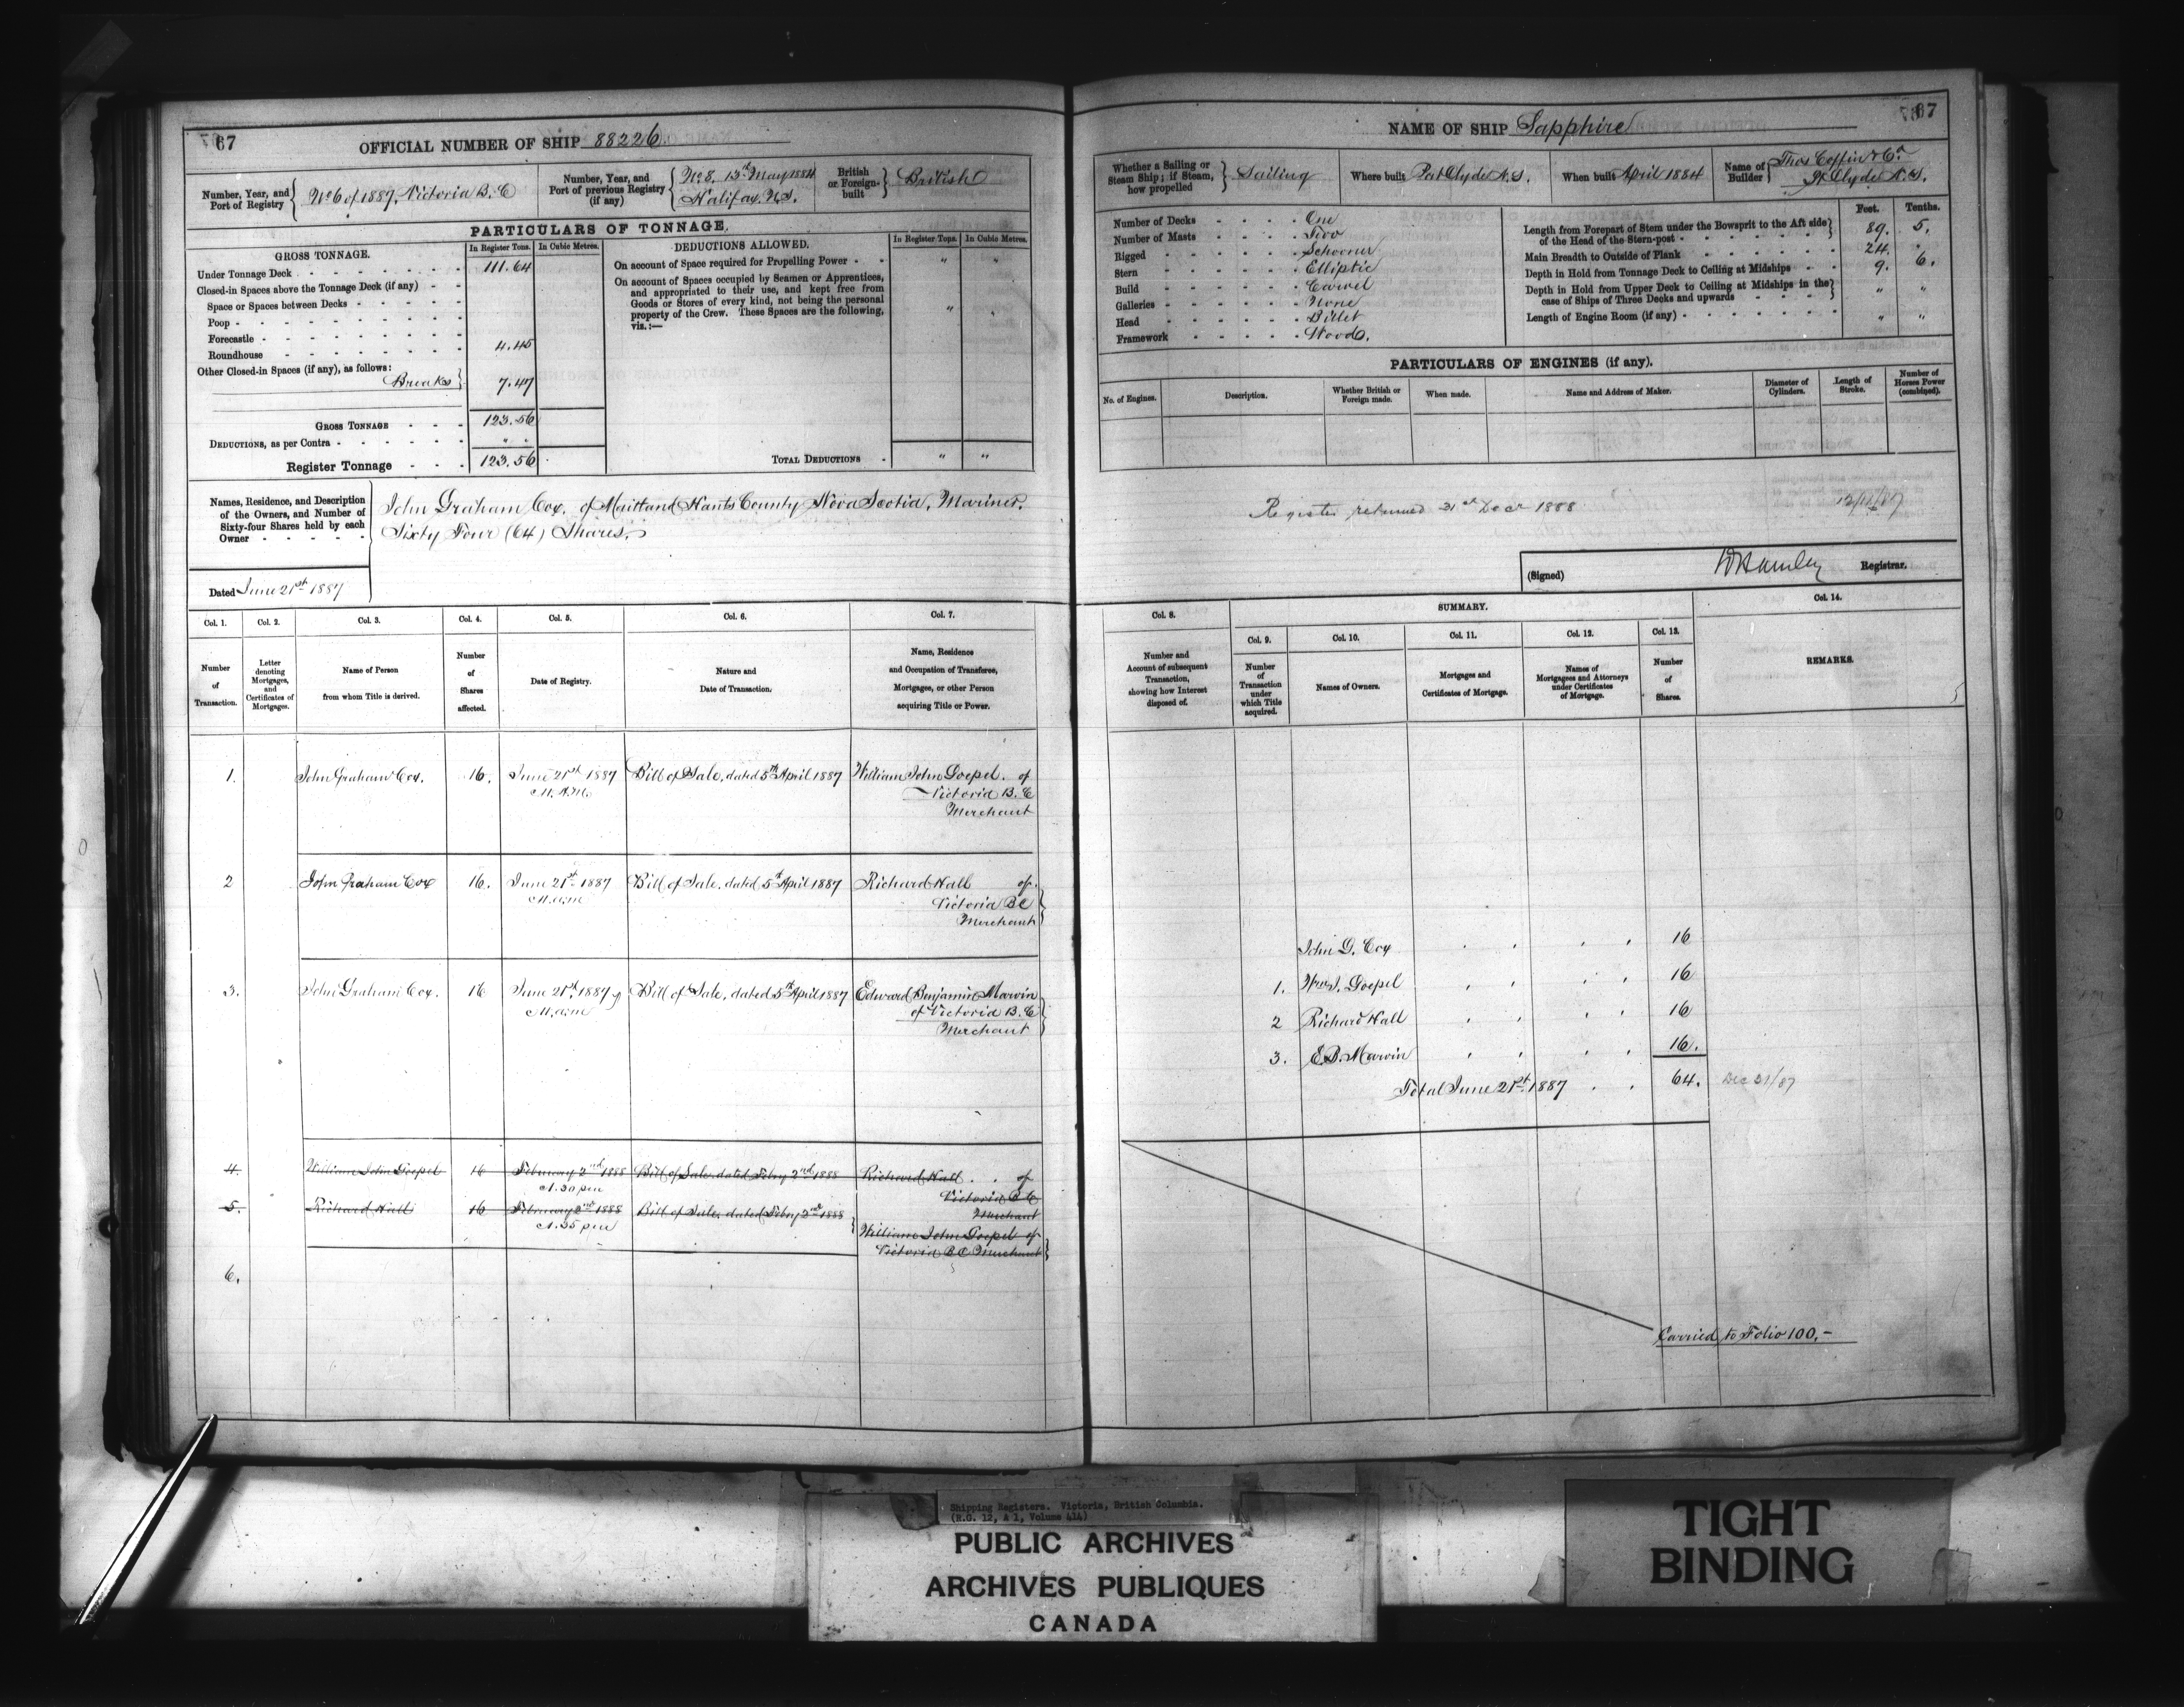 67
OFFICIAL NUMBER OF SHIP 88226
Number, Year, and Port of Registry
No 6 of 1887, Victoria B.C
Number, Year, and Port of previous Registry (if any)
No 8, 13th May 1884
Halifax, N.S.
British or Foreign-built
British
PARTICULARS OF TONNAGE.
GROSS TONNAGE.
In Register Tons.
In Cubic Metres.
Under Tonnage Deck 111.64
Closed-in Spaces above the Tonnage Deck (if any)
Space or Spaces between Decks
Poop
Forecastle
Roundhouse 4.45
Other Closed-in Spaces (if any), as follows:
Breaks 7.47
GROSS TONNAGE 123.56
DEDUCTIONS, as per Contra " "
Register Tonnage 123.56
DEDUCTIONS ALLOWED.
In Register Tons.
In Cubic Metres.
On account of Space required for Propelling Power " "
On account of Spaces occupied by Seamen or Apprentices,
and appropriated to their use, and kept free from
Goods or Stores of every kind, not being the personal
property of the Crew. These Spaces are the following,
viz.:—
" "
TOTAL DEDUCTIONS " "
Names, Residence, and Description
of the Owners, and Number of
Sixty-four Shares held by each
Owner
John Graham Cox, of Maitland Hants County Nova Scotia, Mariner.
Sixty Four (64) Shares.
Dated June 21st 1887
Col. 1. Number of Transaction.
Col. 2. Letter denoting Mortgages, and Certificates of Mortgages.
Col. 3. Name of Person from whom Title is derived.
Col. 4. Number of Shares affected.
Col. 5. Date of Registry.
Col. 6. Nature and Date of Transaction.
Col. 7. Name, Residence and Occupation of Transferee, Mortgage, or other Person acquiring Title or Power.
1. John Graham Cox. 16. June 21st 1887 Bill of Sale, dated 5th April 1887 William John Goepel. of
11. A.M. Victoria B.C
Merchant
2 John Graham Cox 16. June 21st 1887 Bill of Sale, dated 5th April 1887 Richard Hall of.
11. a.m Victoria BC
Merchant
3. John Graham Cox. 16 June 21st, 1887 Bill of Sale, dated 5th April 1887 Edward Benjamin Marvin
11. a.m of Victoria B.C
Merchant
4. William John Goepel 16 February 2nd 1888 Bill of Sale dated Feby 2nd 1888 Richard Hall . . of
1.30 pm Victoria B C
Merchant
5. Richard Hall 16 February 2nd 1888 Bill of Sale, dated Feby 2nd 1888
1.35 pm William John Goepel of
Victoria B C Merchant
6.
67
NAME OF SHIP Sapphire
Whether a Sailing or Steam Ship; if Steam, how propelled
Sailing
Where built Port Clyde N.S.
When built April 1884
Name of Builder
Thos Coffin & Co.
Pt Clyde N.S.
Number of Decks One
Number of Masts Two
Rigged Schooner
Stern Elliptic
Build Carvel
Galleries None
Head Billet
Framework Wood.
Feet. Tenths.
Length from Forepart of Stem under the Bowsprit to the Aft side
of the Head of the Stern-post 89. 5.
Main Breadth to Outside of Plank 24. "
Depth in Hold from Tonnage Deck to Ceiling at Midships 9. 6.
Depth in Hold from Upper Deck to Ceiling at Midships in the
case of Ships of Three Decks and upwards " "
Length of Engine Room (if any) " "
PARTICULARS OF ENGINES (if any).
No. of Engines.
Description.
Whether British or Foreign made.
When made.
Name and Address of Maker.
Diameter of Cylinders.
Length of Stroke.
Number of Horses Power (combined).
Register returned 31st Decr 1888
(Signed) Registrar.
Col. 8. Number and Account of subsequent Transaction, showing how Interest disposed of.
SUMMARY.
Col. 9. Number of Transaction under which Title acquired.
Col. 10. Names of Owners.
Col. 11. Mortgages and Certificates of Mortgage.
Col. 12. Names of Mortgagees and Attorneys under Certificates of Mortgage.
Col. 13. Number of Shares.
Col. 14. REMARKS.
John G. Cox 16
1. Wm J. Goepel 16
2 Richard Hall 16
3. E.B. Marvin 16.
Total June 21st 1887 64. Dec 31/87
Carried to Folio 100,-
Shipping Registers. Victoria, British Columbia.
(R.G. 12, A 1, Volume 414)
PUBLIC ARCHIVES
ARCHIVES PUBLIQUES
CANADA
TIGHT
BINDING